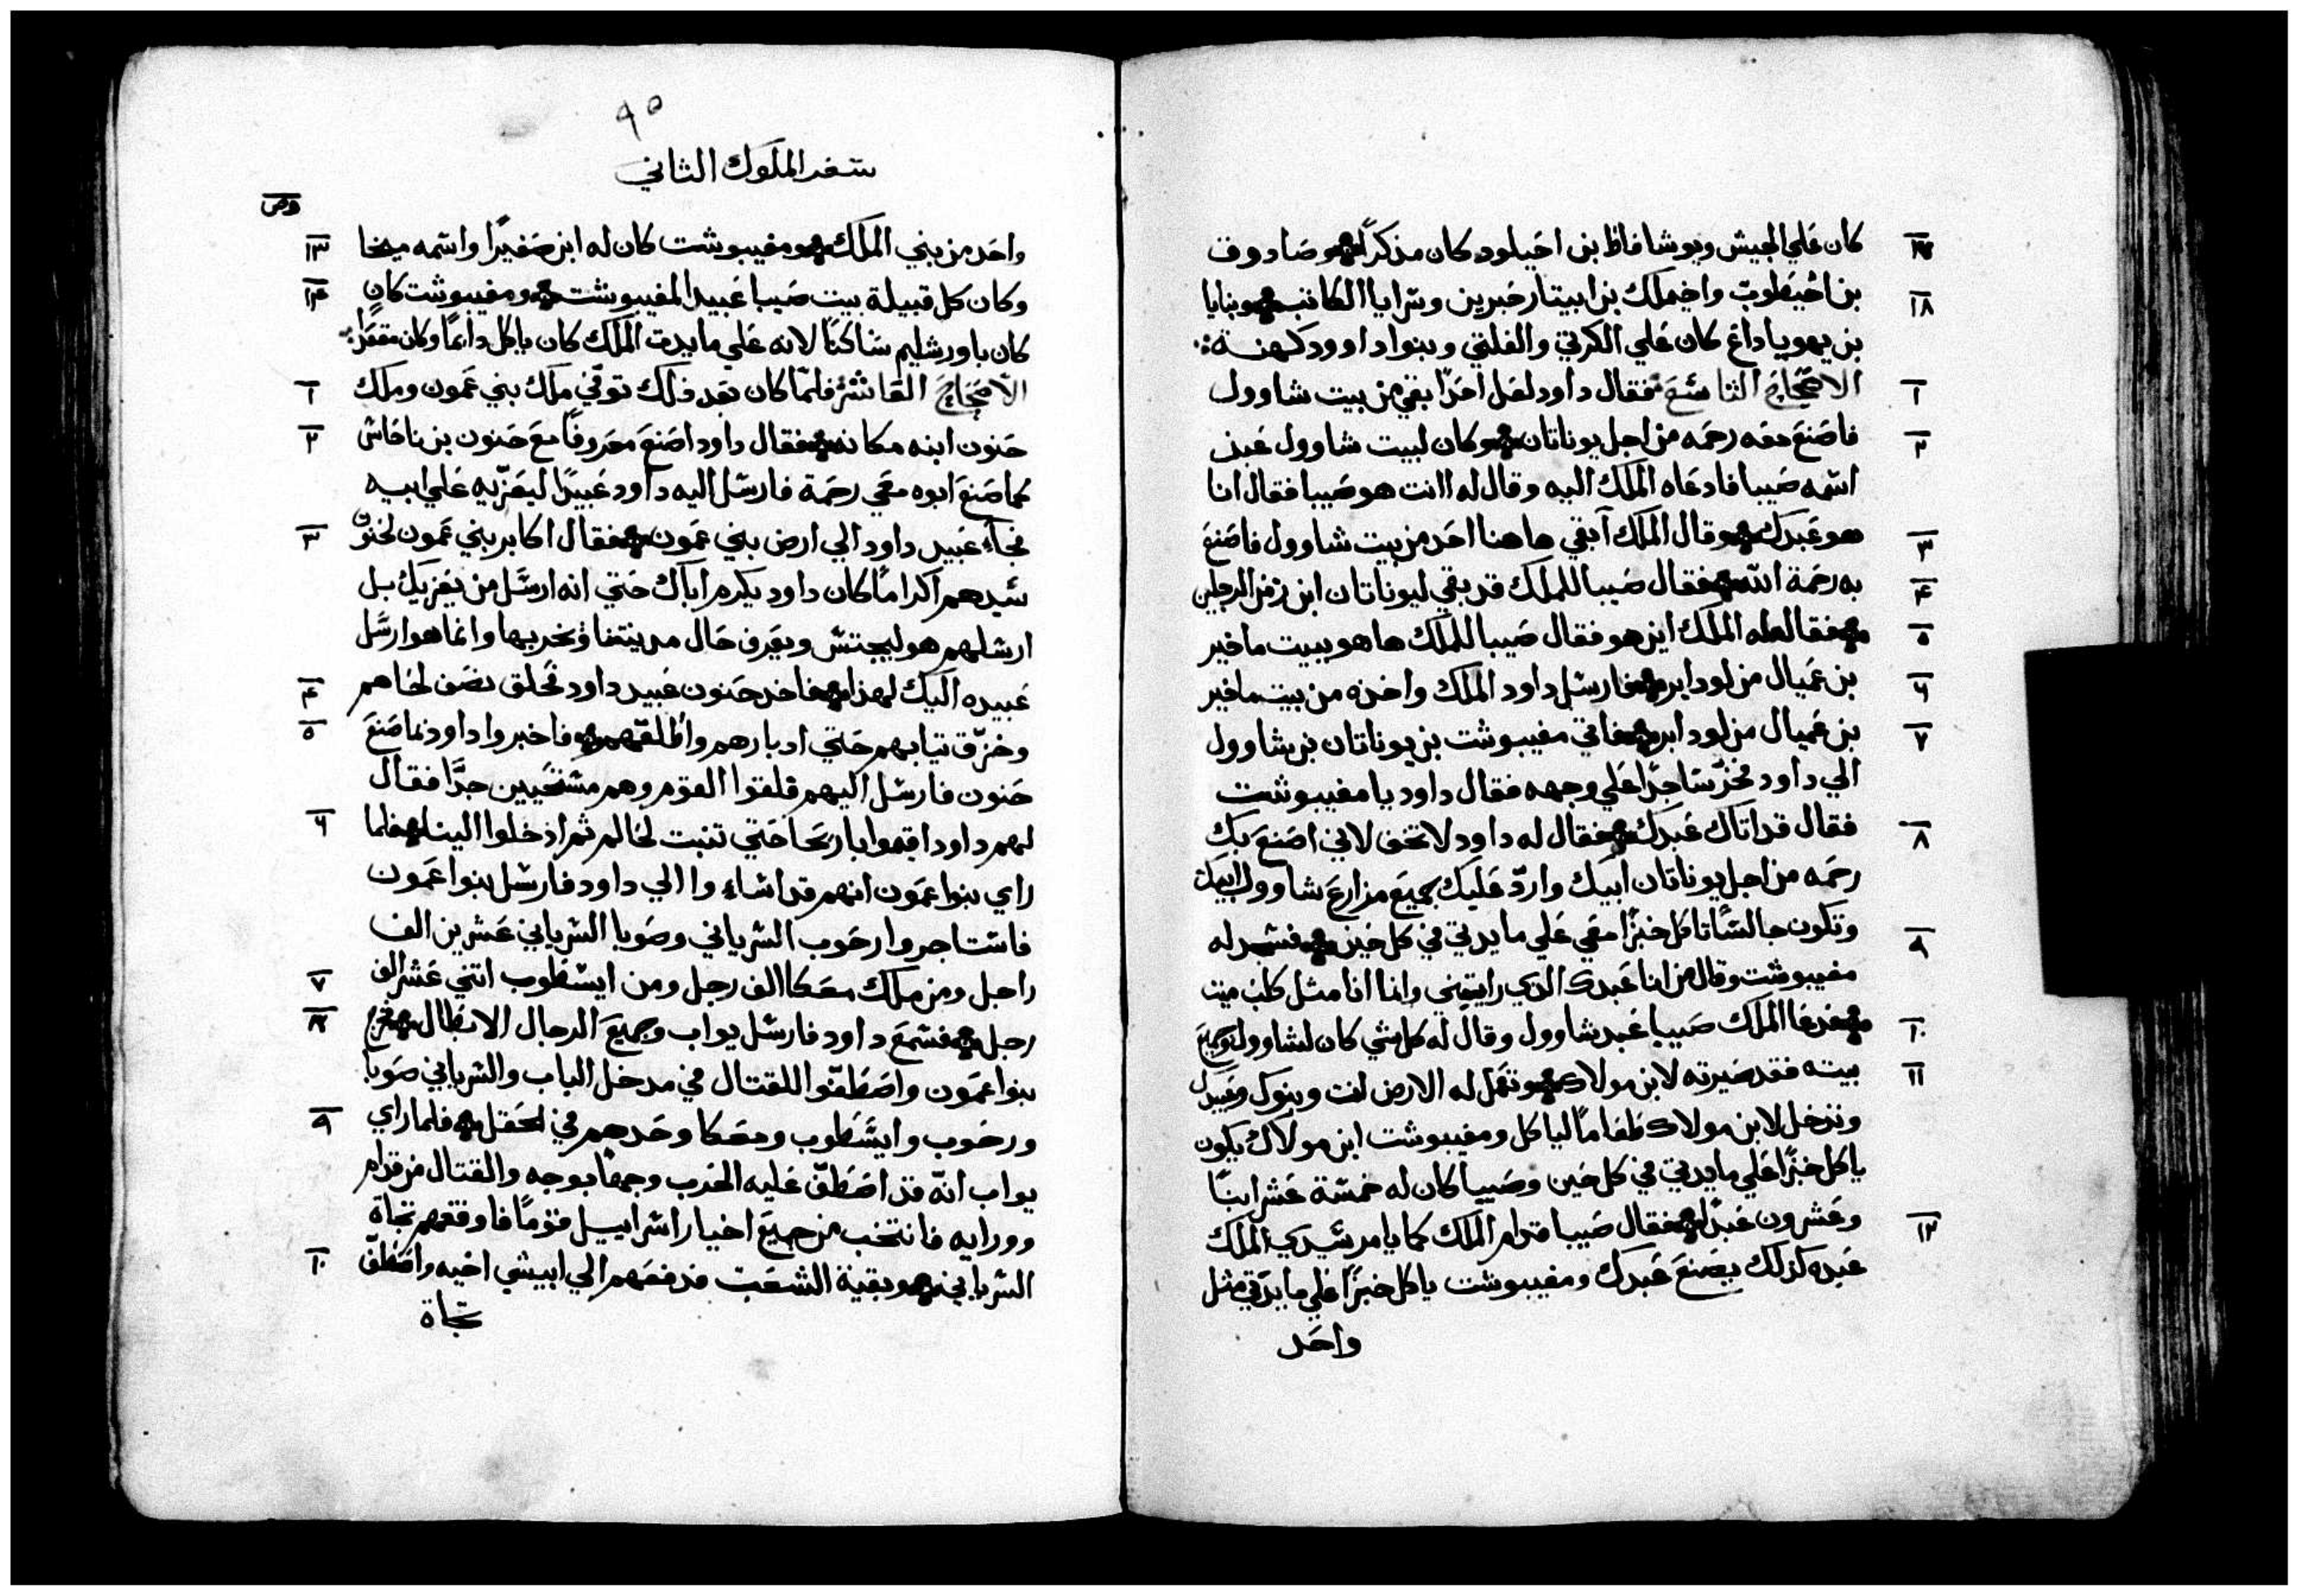 ١٧ كان علي الجيش ويوشافاظ بن احيلود كان مذكرًا وصادوق
١٨ بن اخيطوب واخيملك بن ابيتار حبرين وسرايا الكاتب وبنايا
بن يهوياداع كان علي الكرتي والفلتي وبنوا داوود كهنة
١ الاصحاح التاسع فقال داود لعل احدًا بقي من بيت شاوول
٢ فاصنع معه رحمه من اجل يوناتان وكان لبيت شاوول عبد
اسمه صيبا فادعاه الملك اليه وقال له اانت هو صيبا فقال انا
٣ هو عبدك وقال الملك آبقي هاهنا احد من بيت شاوول فاصنع
٤ به رحمة الله فقال صيبا للملك قد بقي ليوناتان ابن زمن الرجلين
٥ فقال له الملك اين هو فقال صيبا للملك ها هو ببيت ماخير
٦ بن عميال من لودابر فارسل داود الملك واخذه من بيت ماخير
٧ بن عميال من لودابر فاتي مفيبوشت بن يوناتان بن شاوول
الي داود فخر ساجدًا علي وجهه فقال داود يا مفيبوشت
٨ فقال قد اتاك عبدك فقال له داود لا تخف لاني اصنع بك
رحمه من اجل يوناتان ابيك واردّ عليك جميع مزارع شاوول ابيك
٩ وتكون جالسًا تاكل خبزًا معي علي مايدتي في كل حين فسجد له
مفيبوشت وقال من انا عبدك الذي رايتني وانما انا مثل كلب ميت
١٠ فدعا الملك صيبا عبد شاوول وقال له كل شي كان لشاوول وجميع
١١ بيته فقد صيرته لابن مولاك وتعمل له الارض انت وبنوك وعبيدك
وتدخل لابن مولاك طعامًا لياكل ومفيبوشت ابن مولاك يكون
ياكل خبزًا علي مايدتي في كل حين وصيبا كان له خمسة عشر ابنًا
١٢ وعشرون عبدًا فقال صيبا قدام الملك كما يامر سيدي الملك
عبده كذلك يصنع عبدك ومفيبوشت ياكل خبزًا علي مايدتي مثل
واحد
٩٥
سفر الملوك الثاني
١٣ واحد من بني الملك ومفيبوشت كان له ابن صغيرًا واسمه ميخا
١٤ وكان كل قبيلة بيت صيبا عبيد المفيبوشت ومفيبوشت كان
كان باورشليم ساكنًا لانه علي مايدت الملك كان ياكل دايمًا وكان مقعدًا
١ الاصحاح العاشر فلما كان بعد ذلك توفي ملك بني عمون وملك
٢ حنون ابنه مكانه فقال داود اصنع معروفًا مع حنون بن ناحاش
كما صنع ابوه معي رحمة فارسل اليه داود عبيدًا ليعزّيه علي ابيه
٣ فجاء عبيد داود الي ارض بني عمون فقال اكابر بني عمون لحنون
سيدهم اكرامًا كان داود يكرم اباك حتي انه ارسل من يعزيك بل
ارسلهم هو ليجتسّ ويعرف حال مدينتنا ويخربها وانما هو ارسل
٤ عبيده اليك لهذا فاخذ حنون عبيد داود فحلق نصف لحاهم
٥ وخرّق تيابهم حتي ادبارهم واطلقهم فاخبروا داود بما صنع
حنون فارسل اليهم فلقوا القوم وهم مستحيين جدًّا فقال
٦ لهم داود اقيموا باريحا حتي تنبت لحاكم ثم ادخلوا الينا فلما
راي بنوا عمون انهم قد اساءوا الي داود فارسل بنوا عمون
فاستاجروا رحوب السرياني وصوبا السرياني عشرين الف
٧ راجل ومن ملك معكا الف رجل ومن ايسطوب اتني عشر الف
٨ رجل فسمع داود فارسل يواب وجميع الرجال الابطال فخرج
بنوا عمون واصطفّوا للقتال في مدخل الباب والسرياني صوبا
٩ ورحوب وايسطوب ومعكا وحدهم في الحقل فلما راي
يواب انّه قد اصطفّ عليه الحرب وجهًا بوجه والقتال من قدام
وورايه فانتخب من جميع اخيار اسراييل قومًا فاوقفهم تجاة
١٠ السرياني وبقية الشعب فدفعهم الي ابيشي اخيه واصطفّ
تجاة